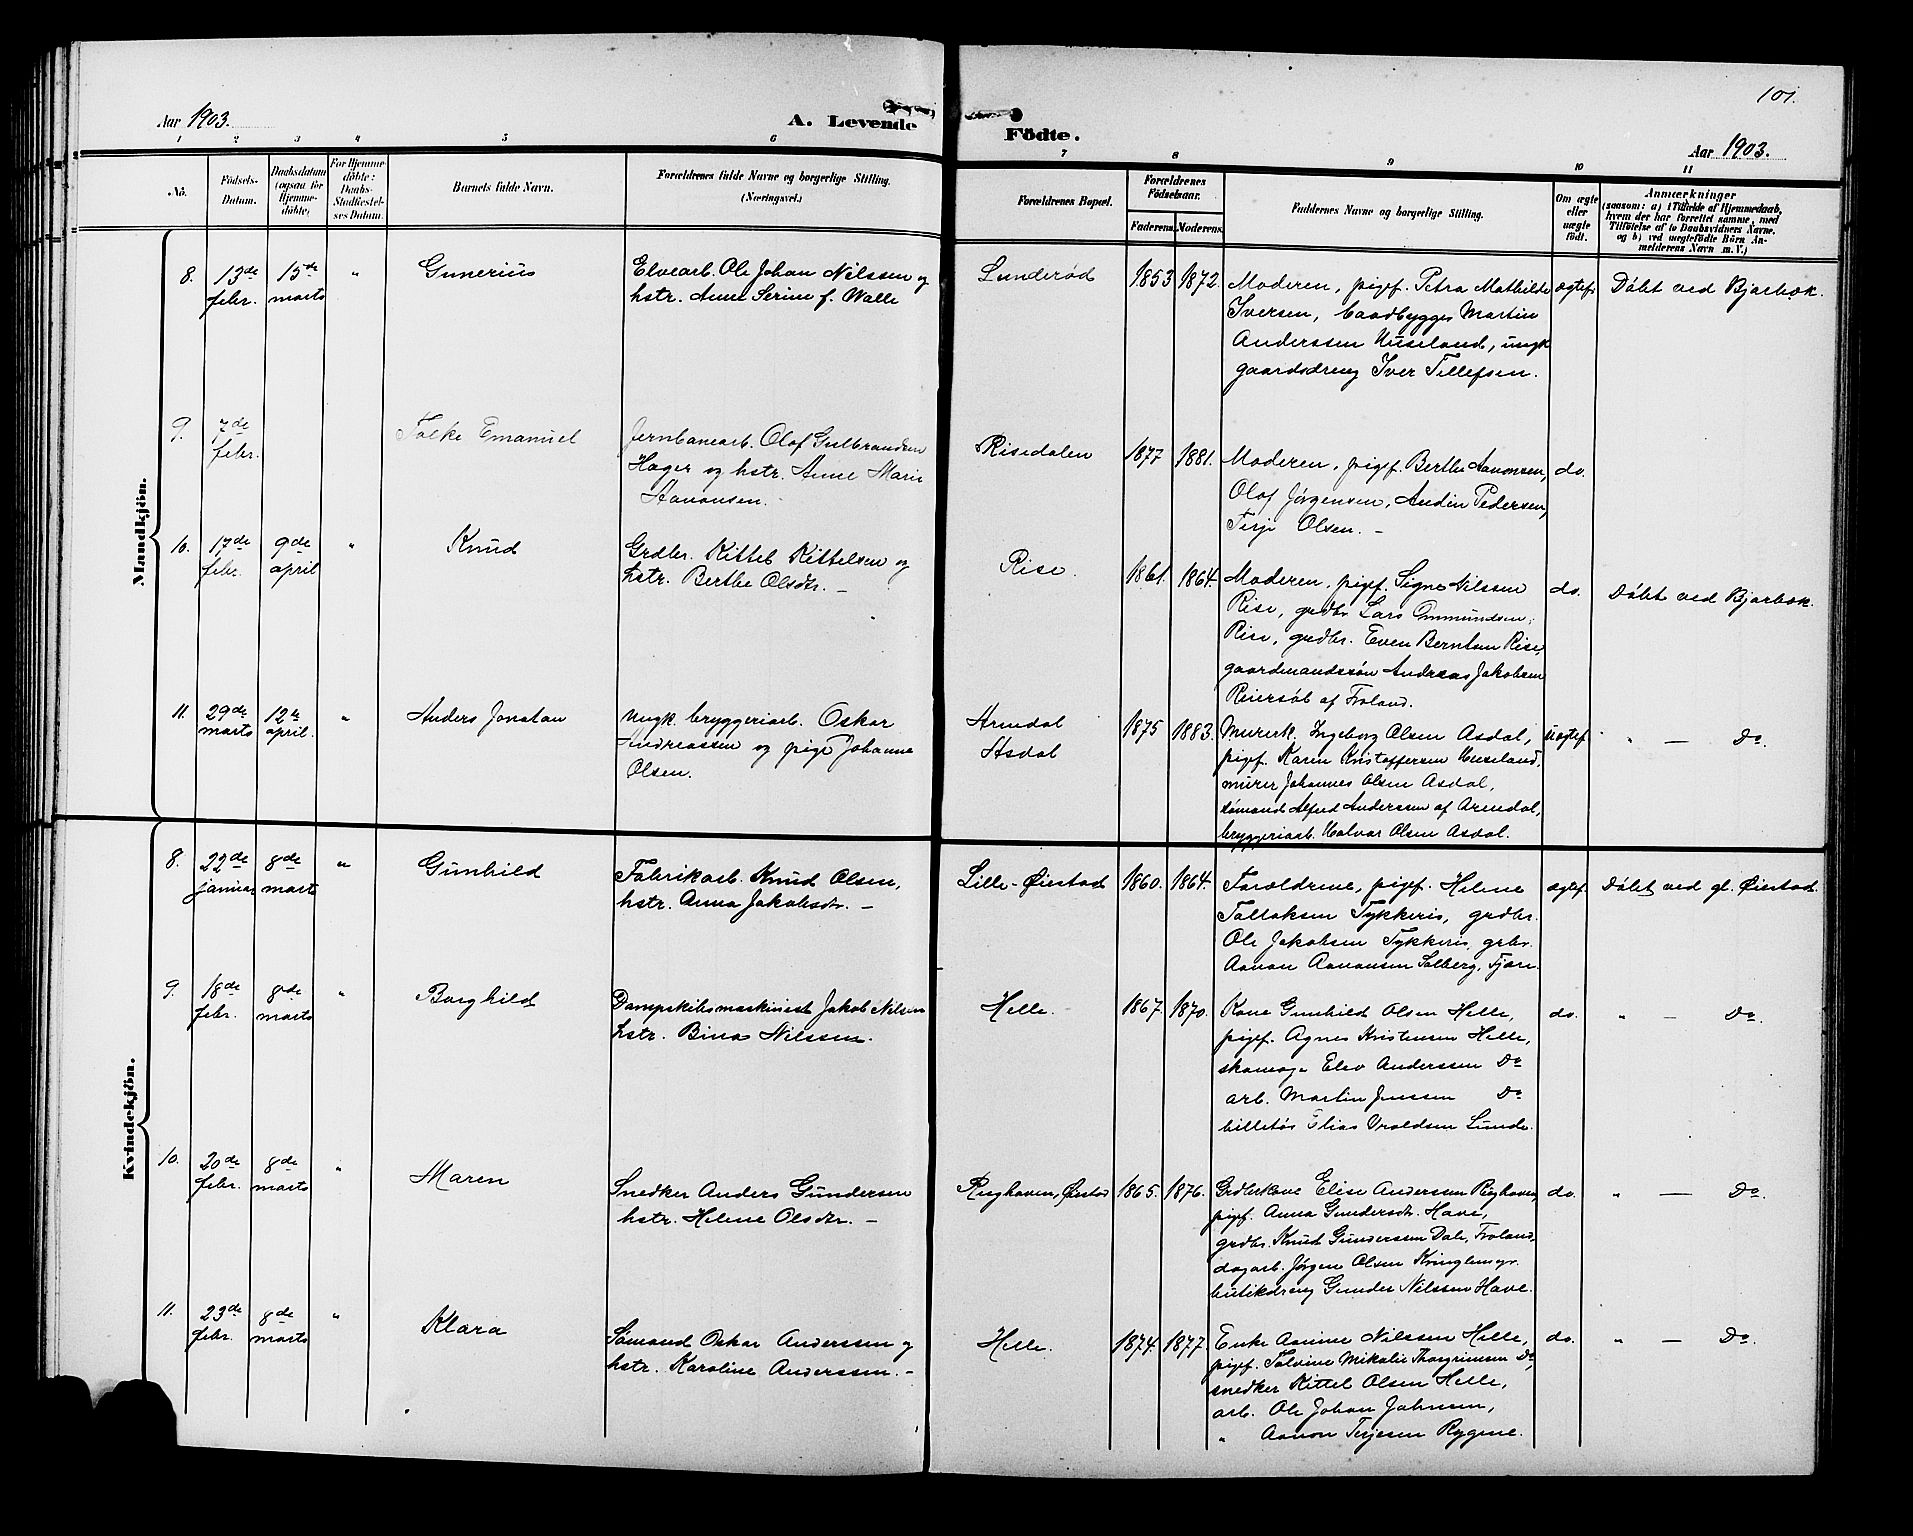 101.
Aar 1903.
A. Levende
Födte.
Aar 1903.
1 2 3 4 5 6 7 8 9 10 11
No.
Födsels-
Datum.
Daabsdatum
(ogsaa for
Hjemme-
döbte)
For Hjemme-
döbte:
Daabs-
Stadfæstel-
ses Datum.
Barnets fulde Navn.
Forældrenes fulde Navne og borgerlige Stilling.
(Næringsvei.)
Forældrenes Bopæl.
Forældrenes
Födselsaar.
Faderens. Moderens.
Faddernes Navne og borgerlige Stilling.
Om ægte
eller
uægte
födt.
Anmærkninger
(saasom: a) i Tilfælde af Hjemmedaab,
hvem der har forrettet samme, med
Tilföielse af to Daabsvidners Navne.
og b) ved uægtefödte Börn An-
melderens Navn m. V.)
Mandkjön.
8.
13de
febr.
15de
marts
"
Gunerius
Elvearb. Ole Johan Nilssen og
hstr. Anne Serine f. Walle
Lunderød
1853 1872.
Moderen, pigef. Petra Mathilde
Iversen, baadbygger Martin
Anderssen Huseland, ungk
gaardsdreng Iver Tellefsen.
ægtef.
Døbt ved Bjorbæk.
9.
7de
febr.
Falke Emanuel
Jernbanearb. Olaf Gulbrandsen
Hager og hstr. Anne Marie
Aavonsen.
Risedalen
1877 1881.
Moderen, pigef. Berthe Aavonsen,
Olaf Jørgensen, Audin Pedersen,
Terje Olsen. –
do.
10.
17de
febr.
9de
april
"
Knud
Grdbr. Kittel Kittelsen og
hstr. Berthe Olsdtr. –
Rise.
1861. 1864.
Moderen, pigef. Signe Nilssen
Rise, grdbr Lars Ommundsen,
Rise, grdbr. Even Berntsen Rise,
gaardmandssøn Andreas Jakobsen
Reiersøl af Froland.
do.
Døbt ved Bjorbæk.
11.
29de
marts
12te
april.
"
Anders Jonatan
Ungk. bryggeriarb. Oskar
Andreassen og pige Johanne
Olsen.
Arendal
Asdal
1875 1883.
Murerk. Ingeborg Olsen Asdal,
pigef. Karen Kristoffersen Huseland,
murer Johannes Olsen Asdal,
sømand Alfred Anderssen af Arendal,
bryggeriarb. Halvor Olsen Asdal.
uægtef.
" – Do.
Kvindekjön.
8.
22de
januar
8de
marts
"
Gunhild
Fabrikarb. Knud Olsen,
hstr. Anna Jakobsdtr. –
Lille-Øiestad
1860. 1864.
Forældrene, pigef. Helene
Tallaksen Tykkeris, grdbr.
Ole Jakobsen Tykkeris, grbr.
Aanon Aanonsen Solberg, Fjære.
ægtef.
Døbt ved gl. Øiestad
9.
18de
febr.
8de
marts
"
Borghild
Dampskibsmaskinist Jakob Nilsen
hstr. Bina Nilssen.
Helle.
1867. 1870.
Kone Gunhild Olsen Helle,
pigef. Agnes Kristensen Helle,
skomag. Elev Anderssen Do
arb. Martin Jenssen Do
billetør Elias Vroldsen Lunde.
do.
" – Do.
10.
20de
febr.
8de
marts
"
Maren
Snedker Anders Gundersen
hstr. Helene Olsdtr. –
Rughaven, Øiestad
1865. 1876.
Grdbrkone Elise Anderssen Rughaven
pigef. Anna Gundersdtr. Have,
grdbr. Knud Gunderssen Dale, Froland,
dagarb. Jørgen Olsen Kringlemyr.
butikdreng Gunder Nilssen Have.
do.
" – Do.
11.
23de
febr.
8de
marts
"
Klara
Sømand Oskar Anderssen og
hstr. Karoline Anderssen. –
Helle.
1874. 1877.
Enke Aanine Nilssen Helle,
pigef. Talvine Mikalie Thorgrimsen Do,
snedker Kittel Olsen Helle,
arb. Ole Johan Johnsen,
" Aanon Terjesen Rygene.
do.
" – Do.